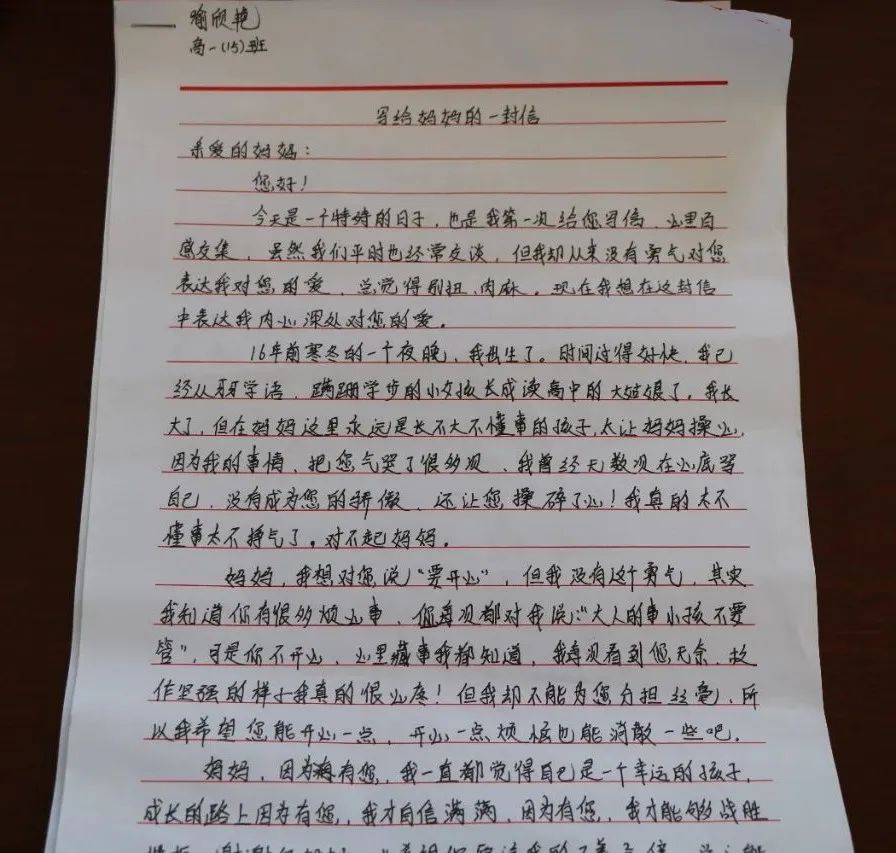 喻欣艳
高一(15)班
写给妈妈的一封信
亲爱的妈妈：
您好！
今天是一个特殊的日子，也是我第一次给您写信，心里百
感交集，虽然我们平时也经常交谈，但我却从来没有勇气对您
表达我对您的爱，总觉得别扭、肉麻。现在我想在这封信
中表达我内心深处对您的爱。
16年前寒冬的一个夜晚，我出生了。时间过得好快，我已
经从牙牙学语，蹒跚学步的小女孩长成读高中的大姑娘了。我长
大了，但在妈妈这里永远是长不大不懂事的孩子，太让妈妈操心，
因为我的事情，把您气哭了很多次，我曾经无数次在心底骂
自己，没有成为您的骄傲，还让您操碎了心！我真的太不
懂事太不挣气了。对不起妈妈。
妈妈，我想对您说"要开心"，但我没有这个勇气，其实
我知道你有很多烦心事，您每次都对我说："大人的事小孩不要
管"，可是你不开心，心里藏事我都知道，我每次看到您无奈，故
作坚强的样子我真的很心疼！但我却不能为您分担丝毫，所
以我希望您能开心一点，开心一点烦恼也能消散一些吧。
妈妈，因为有您，我一直都觉得自己是一个幸运的孩子，
成长的路上因为有您，我才自信满满，因为有您，我才能够战胜